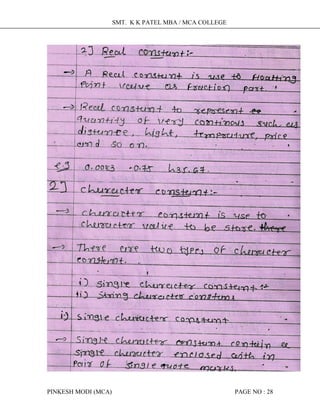 SMT. K K PATEL MBA / MCA COLLEGE
2] Real constant:-
→ A Real constant is use to floatting
point value as fruction part.
→ Real constant to represent
quantity of very continous such as
distunce, hight, tempreture, price
and so on.
eg 0.0083 -0.75 435.67.
2] character constant:-
→ character constant is use to
character value to be store. there
→ There are two types of character
constant.
i) single character constant
ii) string character constant
i) single character constant
→ single character constant contain a
single character enclosed with in
pair of single quote marks.
PINKESH MODI (MCA) PAGE NO : 28